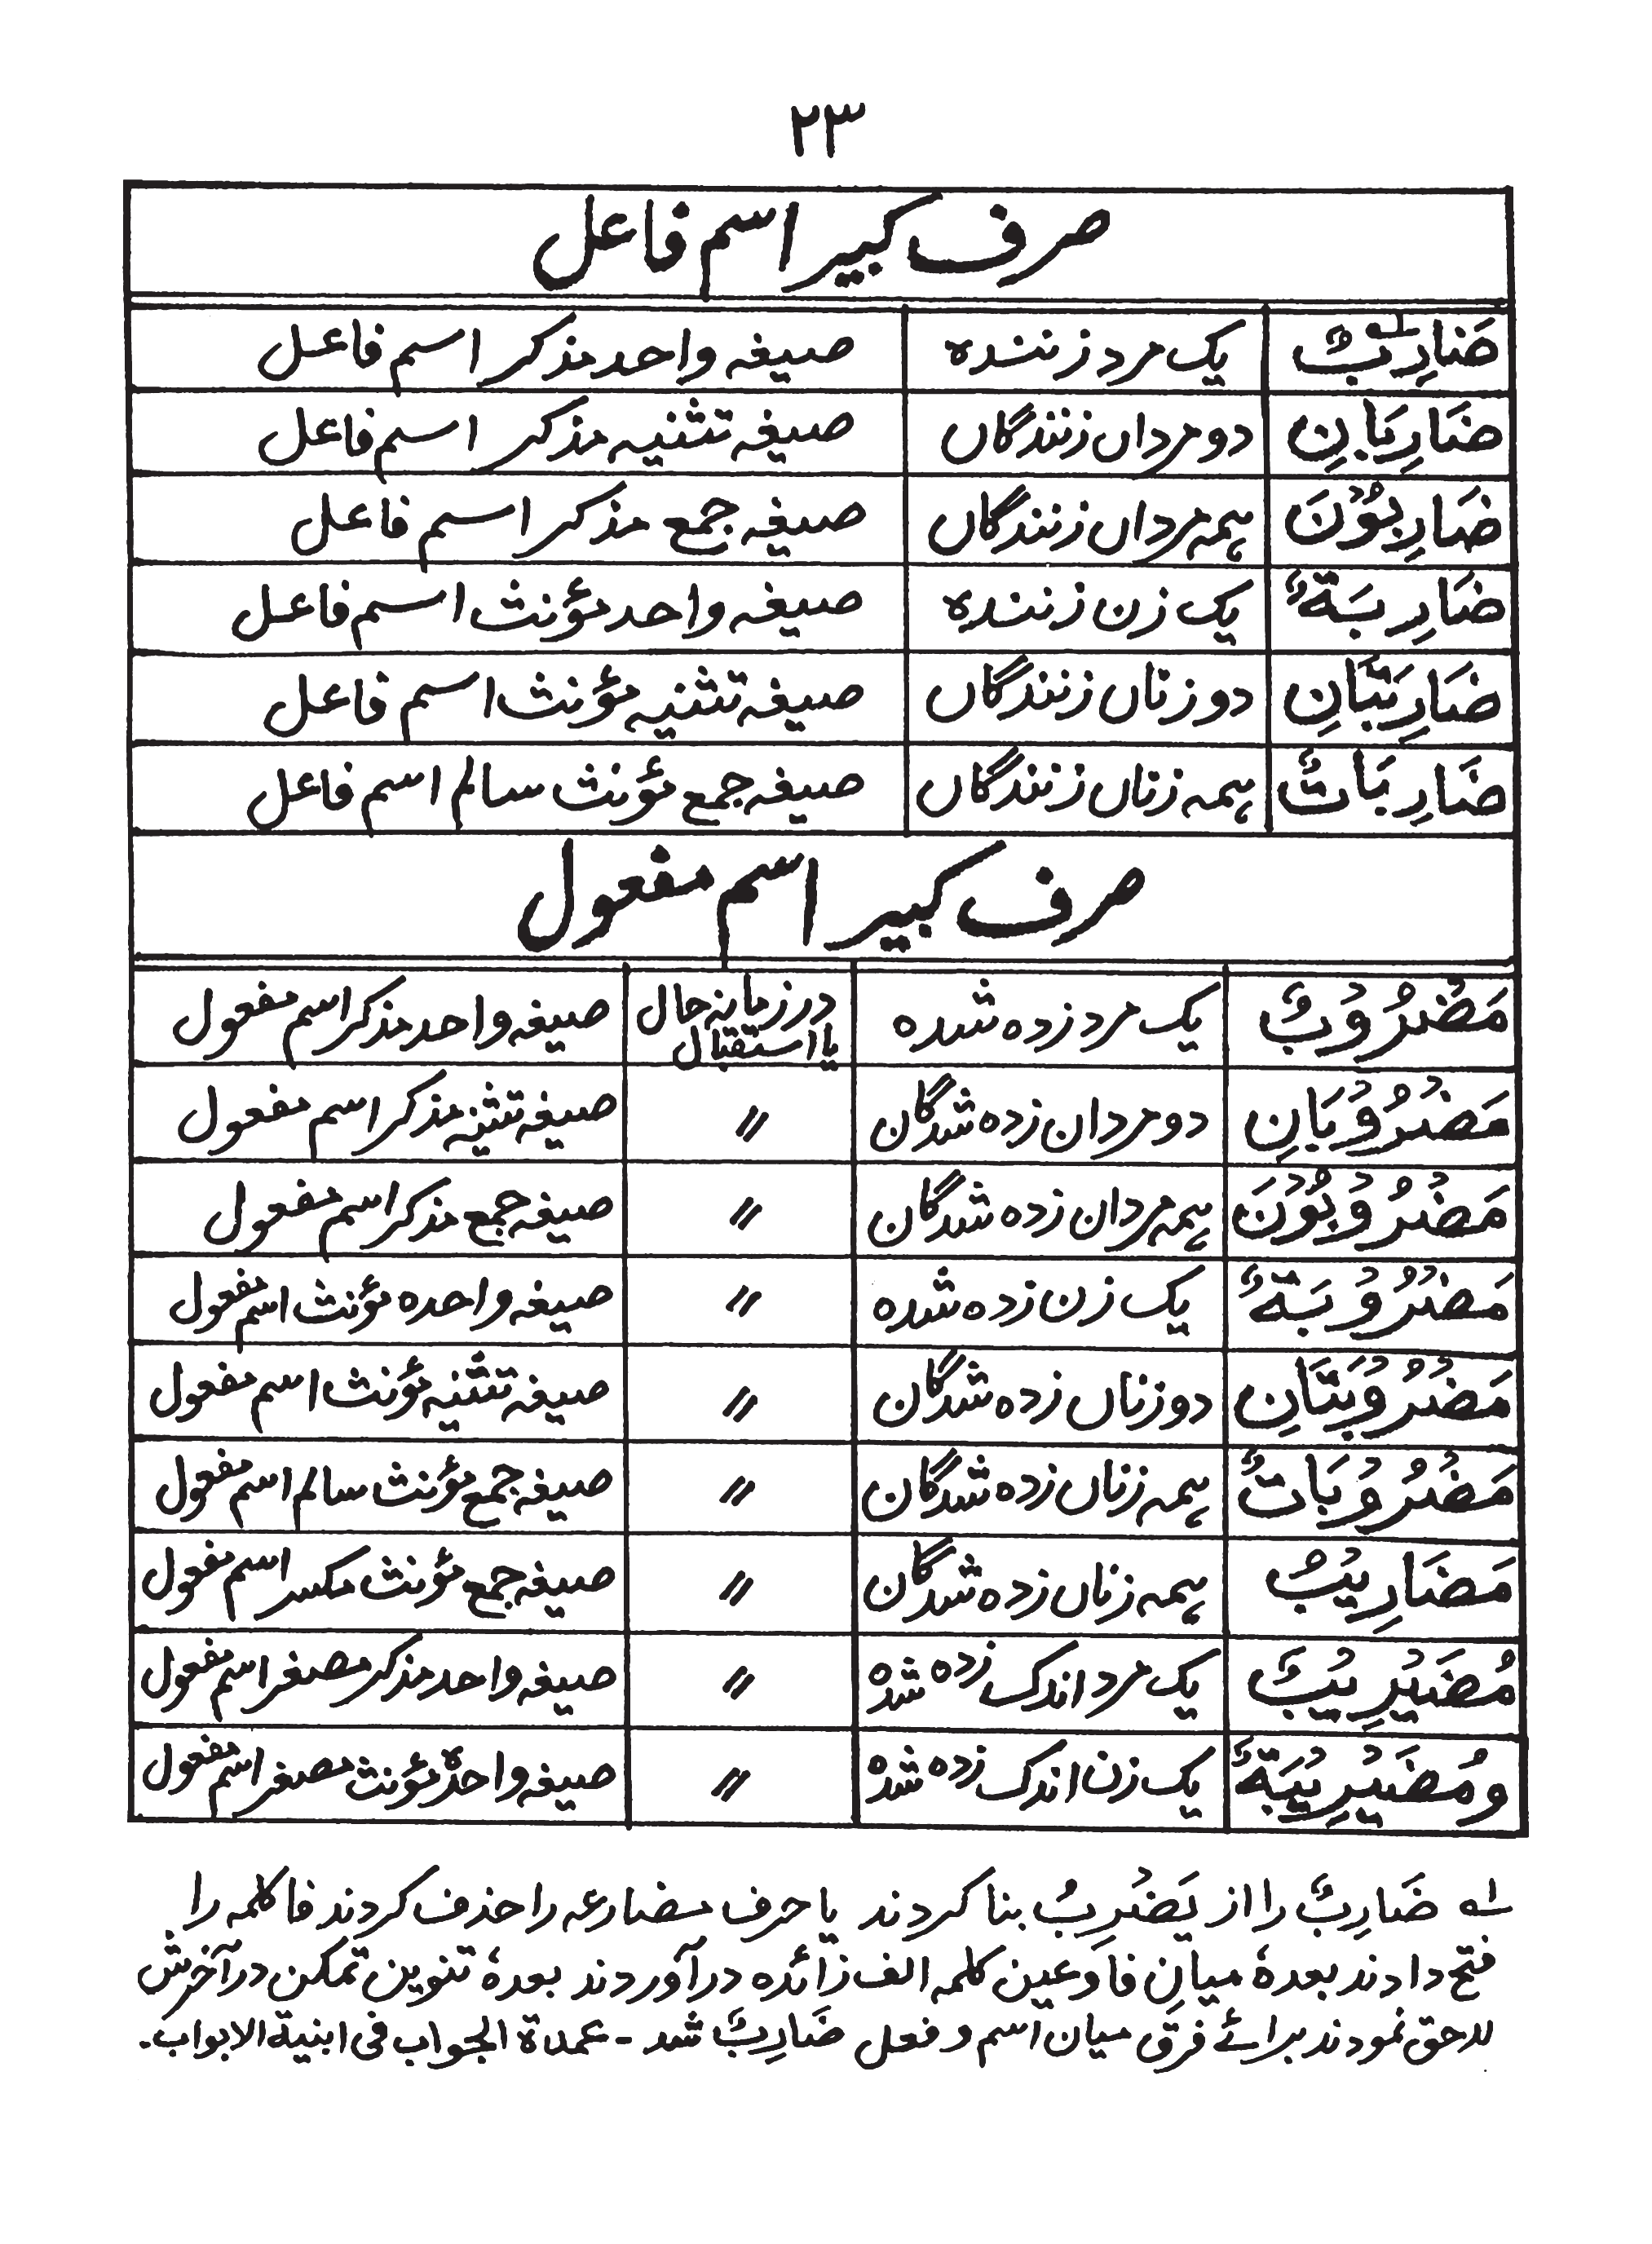 ۲۳
صرف کبیر اسم فاعل
ضَارِبٌ لہ یک مرد زنندہ صیغہ واحد مذکر اسم فاعل
ضَارِبَانِ دو مرداں زنندگاں صیغہ تثنیہ مذکر اسم فاعل
ضَارِبُوْنَ ہمہ مرداں زنندگاں صیغہ جمع مذکر اسم فاعل
ضَارِبَةٌ یک زن زنندہ صیغہ واحد مؤنث اسم فاعل
ضَارِبَتَانِ دو زناں زنندگاں صیغہ تثنیہ مؤنث اسم فاعل
ضَارِبَاتٌ ہمہ زناں زنندگاں صیغہ جمع مؤنث سالم اسم فاعل
صرف کبیر اسم مفعول
مَضْرُوْبٌ یک مرد زدہ شدہ در زمانہ حال یا استقبال صیغہ واحد مذکر اسم مفعول
مَضْرُوْبَانِ دو مردان زدہ شدگان 〃 صیغہ تثنیہ مذکر اسم مفعول
مَضْرُوْبُوْنَ ہمہ مردان زدہ شدگان 〃 صیغہ جمع مذکر اسم مفعول
مَضْرُوْبَةٌ یک زن زدہ شدہ 〃 صیغہ واحدہ مؤنث اسم مفعول
مَضْرُوْبَتَانِ دو زناں زدہ شدگان 〃 صیغہ تثنیہ مؤنث اسم مفعول
مَضْرُوْبَاتٌ ہمہ زناں زدہ شدگان 〃 صیغہ جمع مؤنث سالم اسم مفعول
مَضَارِيْبُ ہمہ زناں زدہ شدگان 〃 صیغہ جمع مؤنث مکسر اسم مفعول
مُضَيْرِيْبٌ یک مرد اندک زدہ شدہ 〃 صیغہ واحد مذکر مصغر اسم مفعول
و مُضَيْرِيْبَةٌ یک زن اندک زدہ شدہ 〃 صیغہ واحدۃ مؤنث مصغر اسم مفعول
لہ ضَارِبٌ را از يَضْرِبُ بنا کردند یا حرف مضارعہ را حذف کردند فا کلمہ را
فتح دادند بعدہٗ میانِ فا و عین کلمہ الف زائدہ در آوردند بعدہٗ تنوین تمکن در آخرش
لاحق نمودند برائے فرق میان اسم و فعل ضَارِبٌ شد - عمدۃ الجواب فی ابنیۃ الابواب۔